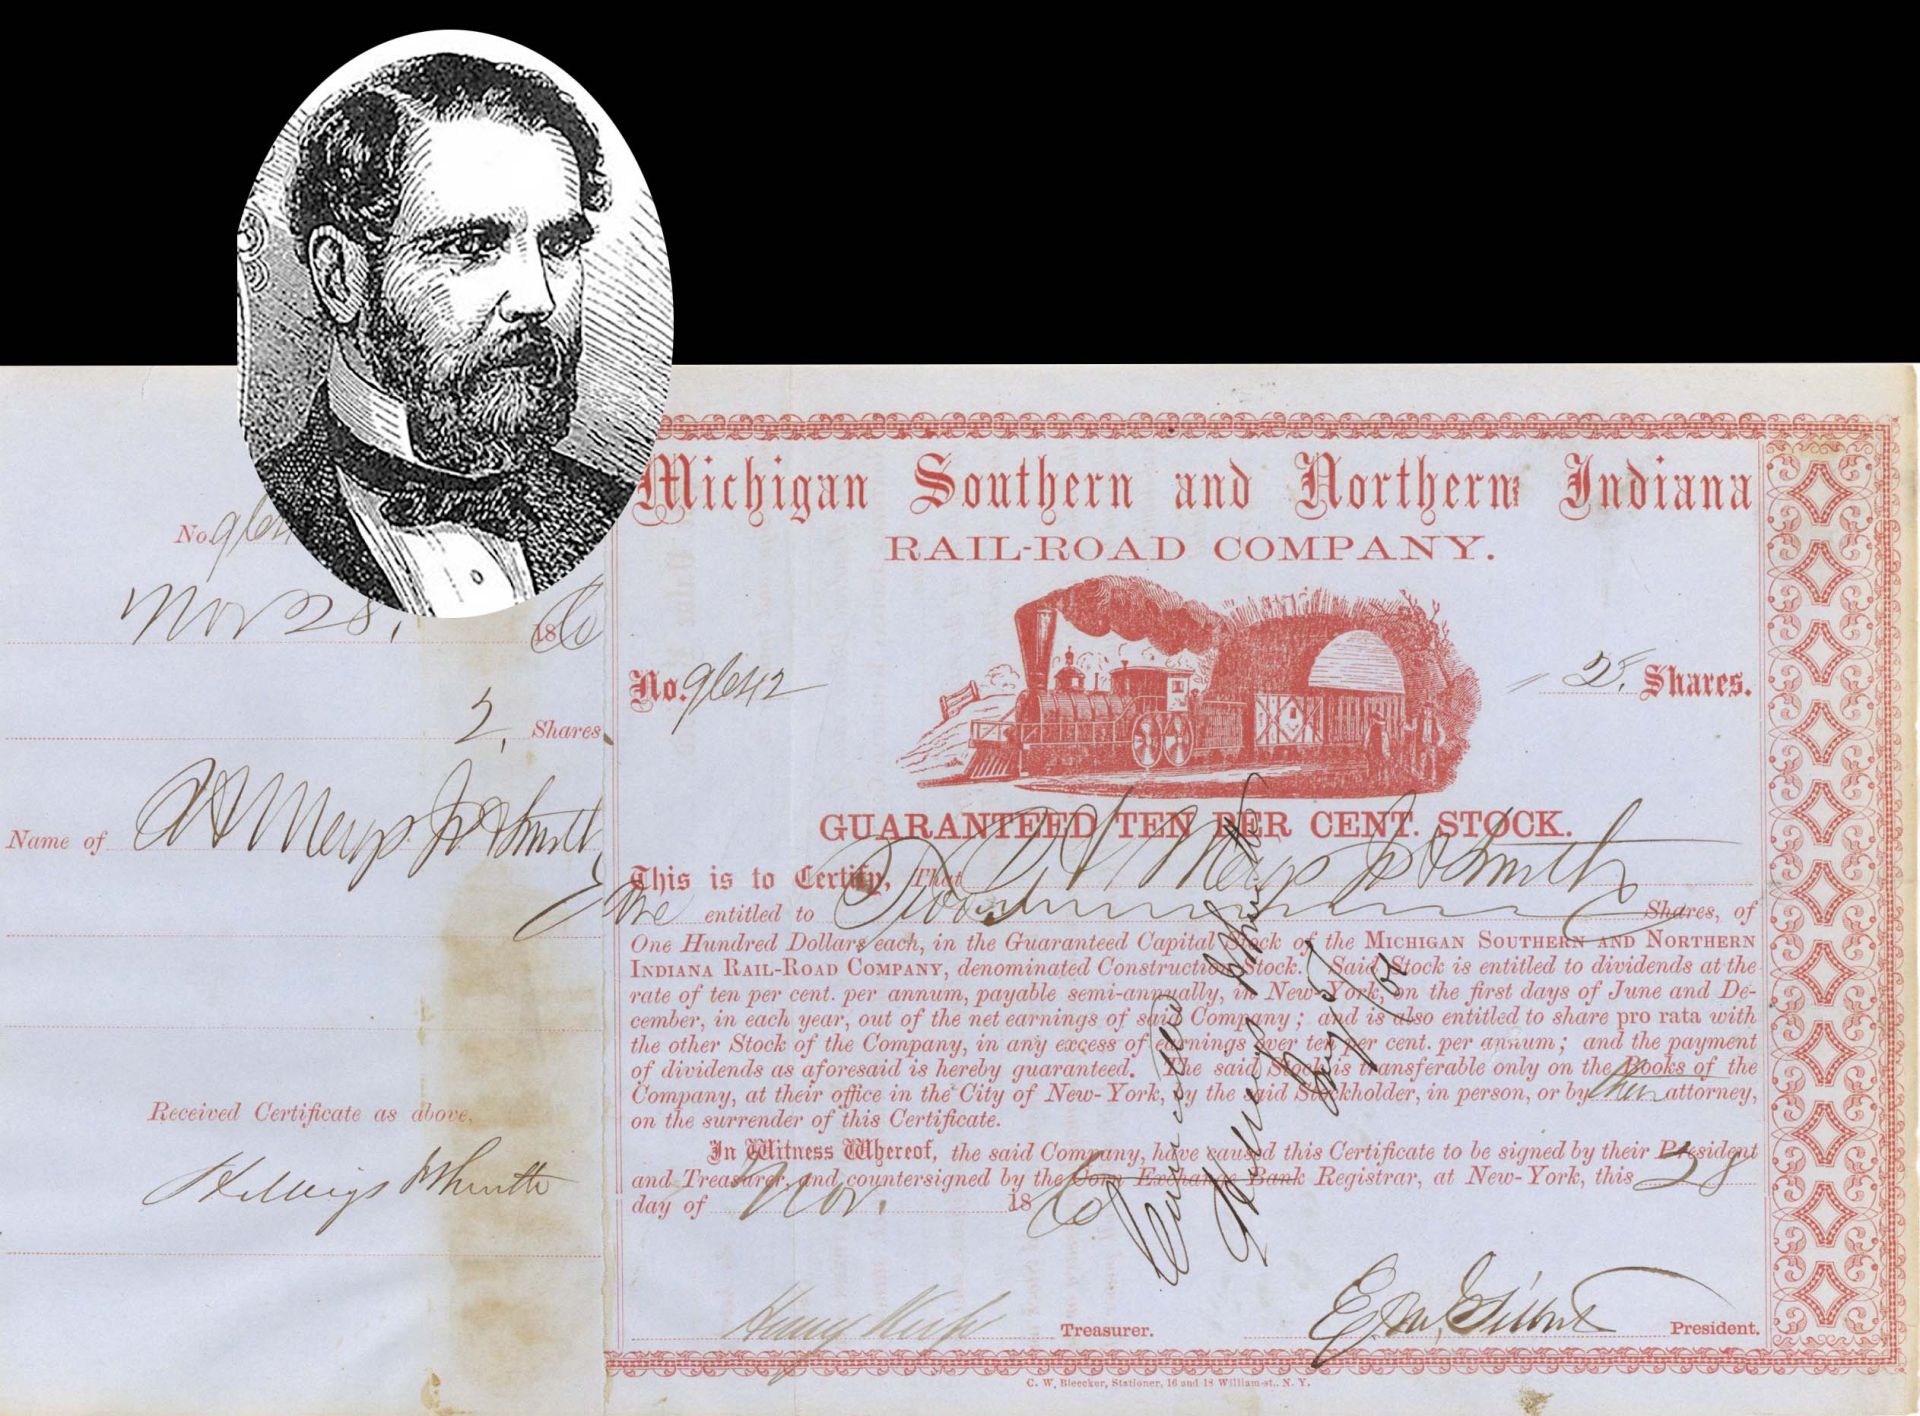 No. 964
Nov 28, 1860
2, Shares
Name of H Meigs Jr & Smith
Received Certificate as above,
H Meigs Jr & Smith
Michigan Southern and Northern Indiana
RAIL-ROAD COMPANY.
No. 9642
2, Shares.
GUARANTEED TEN PER CENT. STOCK.
This is to Certify, That H Meigs Jr & Smith
are entitled to Two Shares, of
One Hundred Dollars each, in the Guaranteed Capital Stock of the MICHIGAN SOUTHERN AND NORTHERN
INDIANA RAIL-ROAD COMPANY, denominated Construction Stock. Said Stock is entitled to dividends at the
rate of ten per cent. per annum, payable semi-annually, in New-York, on the first days of June and De-
cember, in each year, out of the net earnings of said Company; and is also entitled to share pro rata with
the other Stock of the Company, in any excess of earnings over ten per cent. per annum; and the payment
of dividends as aforesaid is hereby guaranteed. The said Stock is transferable only on the Books of the
Company, at their office in the City of New-York, by the said Stockholder, in person, or by their attorney,
on the surrender of this Certificate.
In Witness Whereof, the said Company, have caused this Certificate to be signed by their President
and Treasurer, and countersigned by the Corn Exchange Bank Registrar, at New-York, this 28
day of Nov. 1860
Cancelled
Henry Keep Treasurer.
E. M. Gilbert President.
C. W. Bleecker, Stationer, 16 and 18 William-st., N. Y.